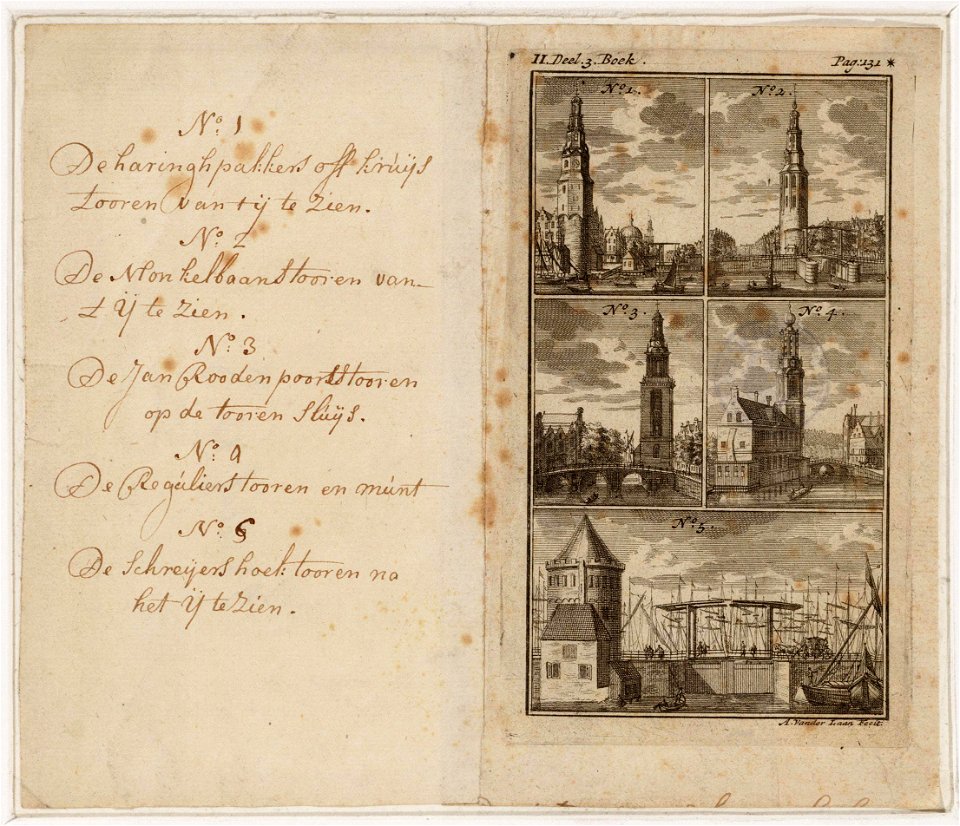 No. 1
De haringhpakkers off krúÿs
tooren van t ij te zien.
No. 2
De Monkelbaanstooren van
t IJ te zien.
No. 3
De Jan Roodenpoortstooren
op de tooren slúÿs.
No. 4
De Regúlierstooren en múnt
No. 6
De Schreÿershoek tooren na
het IJ te zien.
II. Deel. 3. Boek.
Pag: 131 *
No. 1.
No. 2.
No. 3.
No. 4.
No. 5.
A. Vander Laan Fecit.